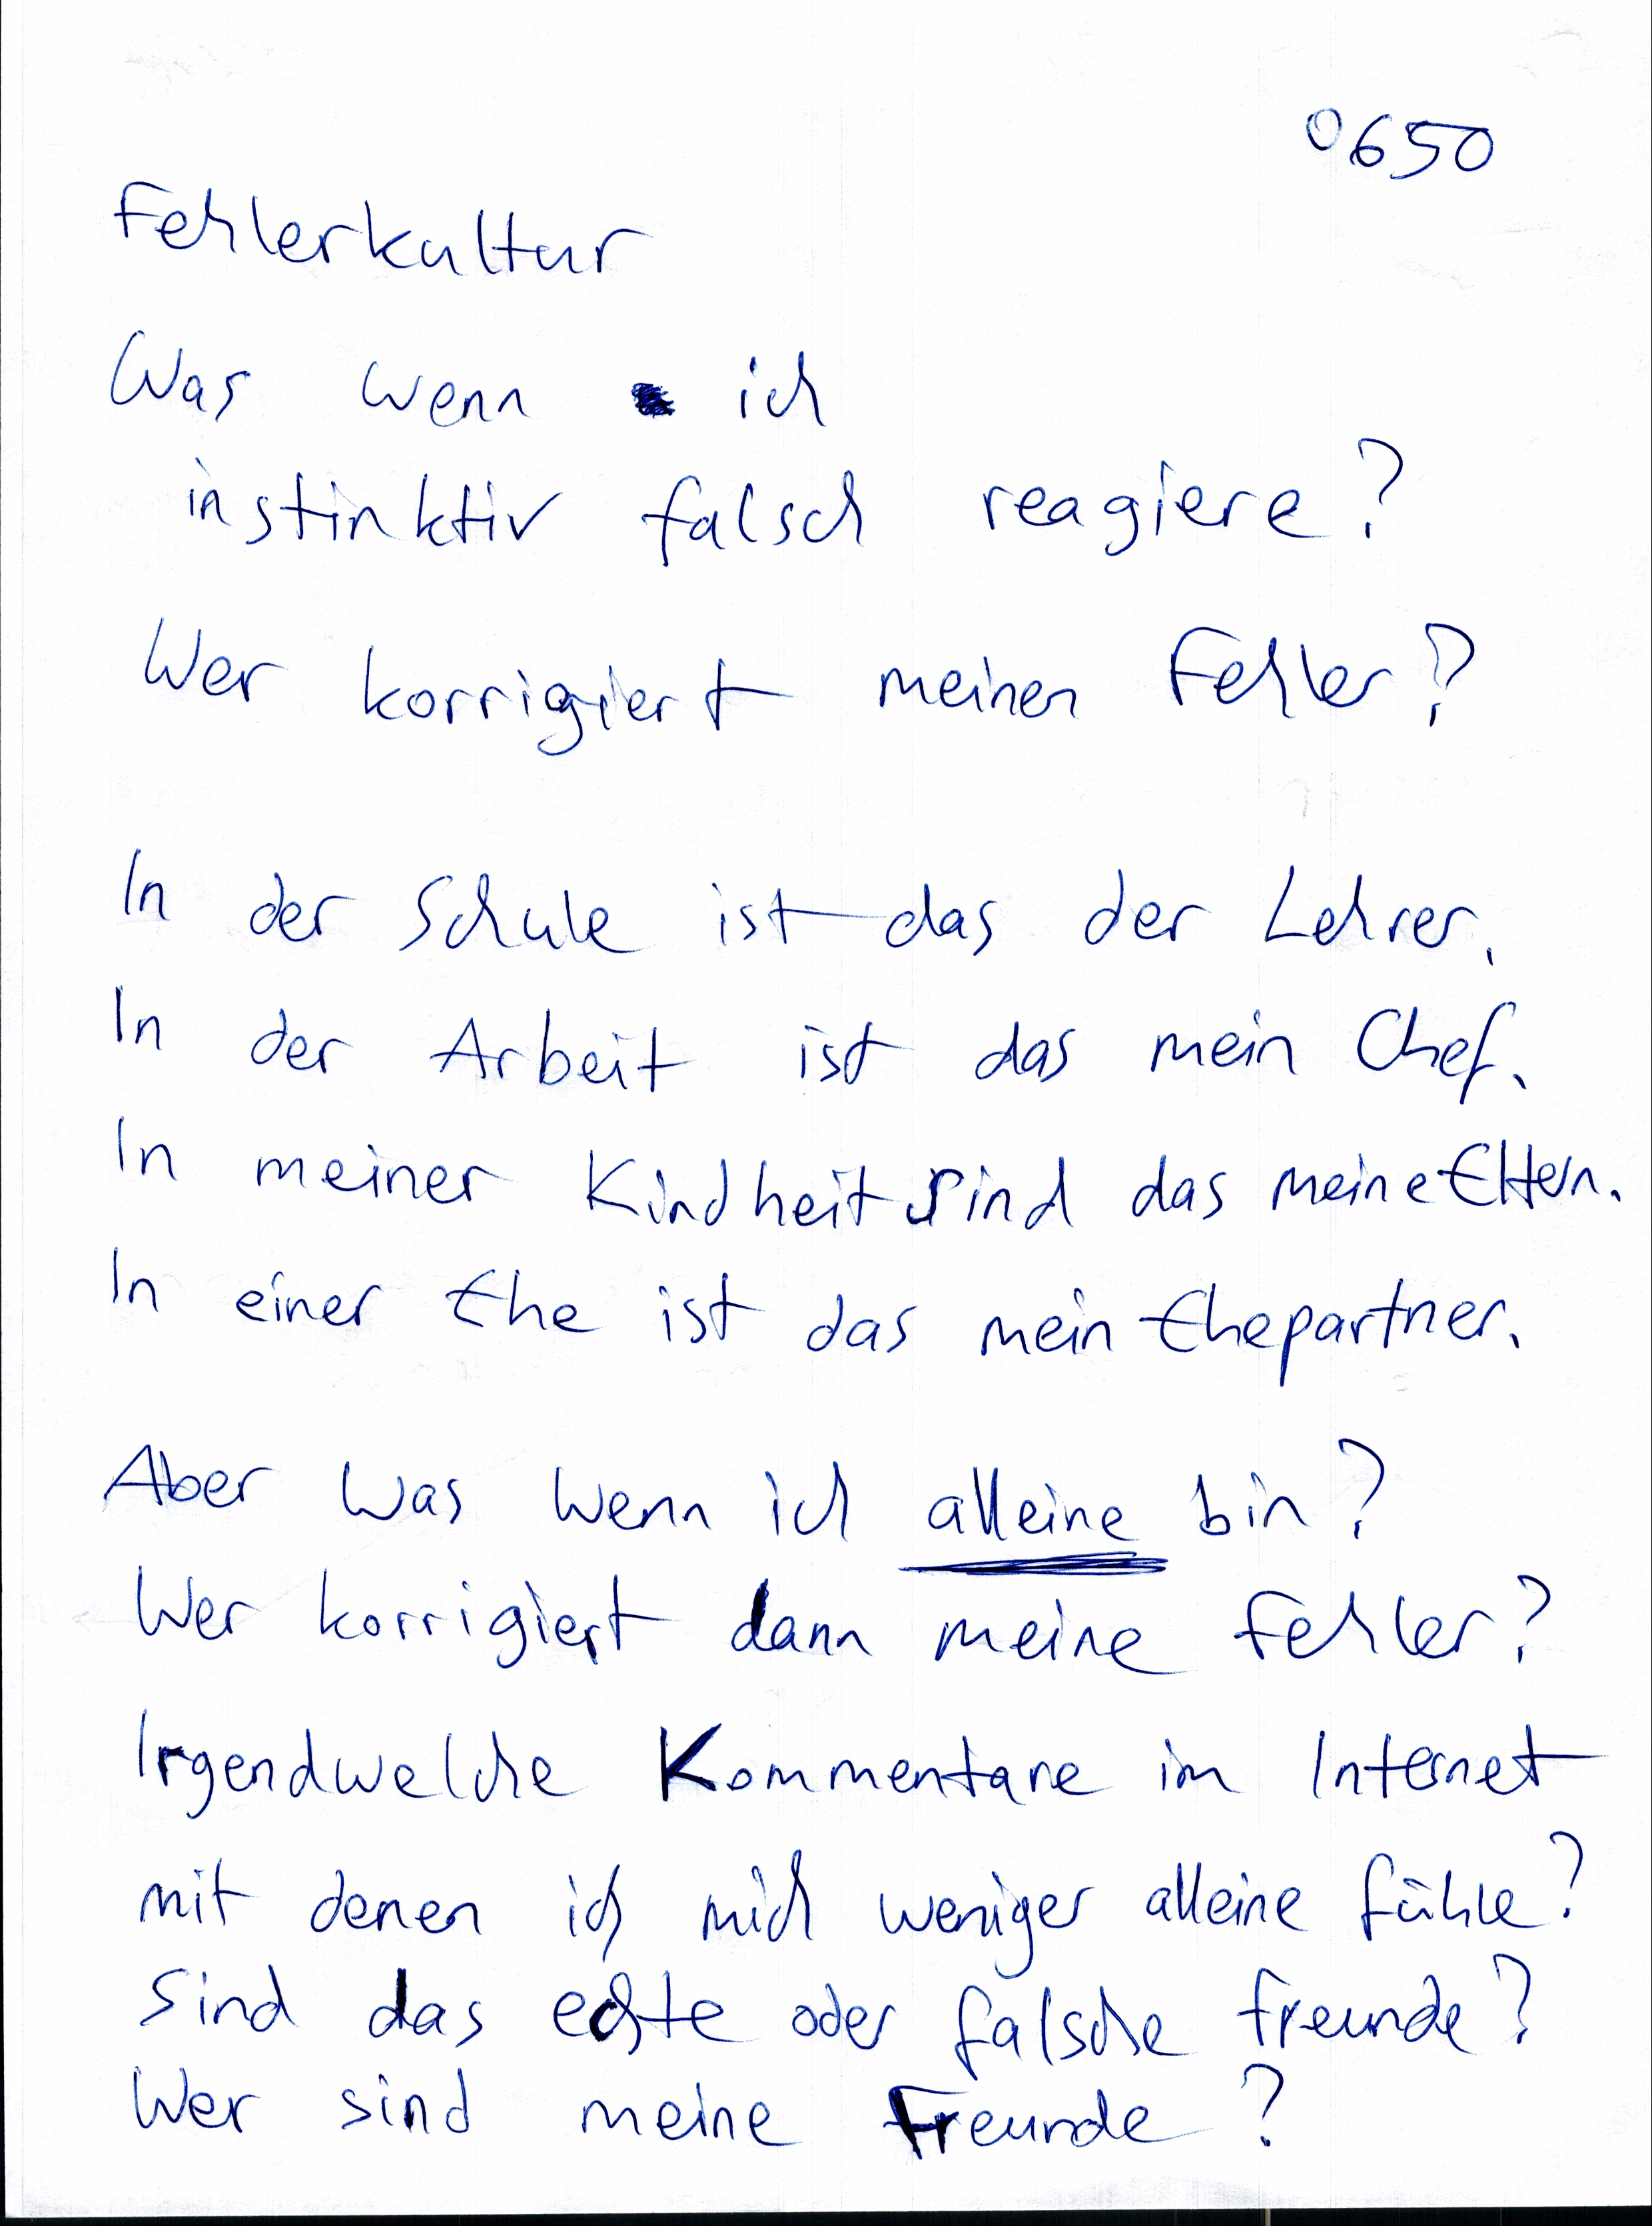 0650
Fehlerkultur
Was wenn ich
instinktiv falsch reagiere?
Wer korrigiert meinen Fehler?
In der Schule ist das der Lehrer.
In der Arbeit ist das mein Chef.
In meiner Kindheit sind das meine Eltern.
In einer Ehe ist das mein Ehepartner.
Aber was wenn ich alleine bin?
Wer korrigiert dann meine Fehler?
Irgendwelche Kommentare im Internet
mit denen ich mich weniger alleine fühle?
Sind das echte oder falsche Freunde?
Wer sind meine Freunde?